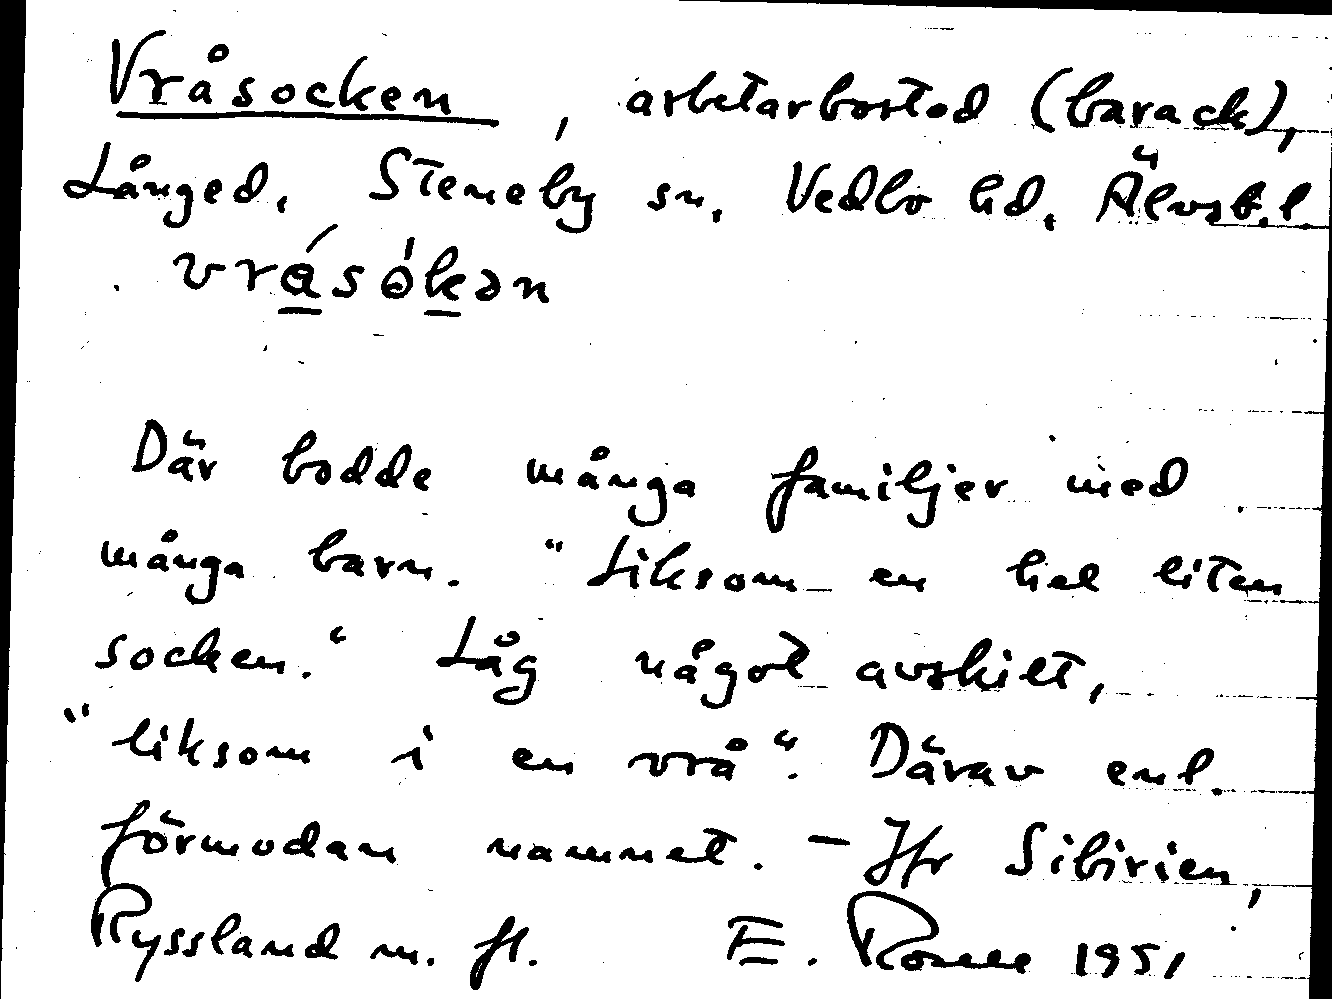 Vråsocken, arbetarbostad (barack),
Långed, Steneby sn, Vedbo hd, Älvsb.l.
vrásókən
Där bodde många familjer med
många barn. "Liksom en hel liten
socken." Låg något avskilt,
"liksom i en vrå". Därav enl.
förmodan namnet. - Jfr Sibirien,
Ryssland m. fl. E. 1951